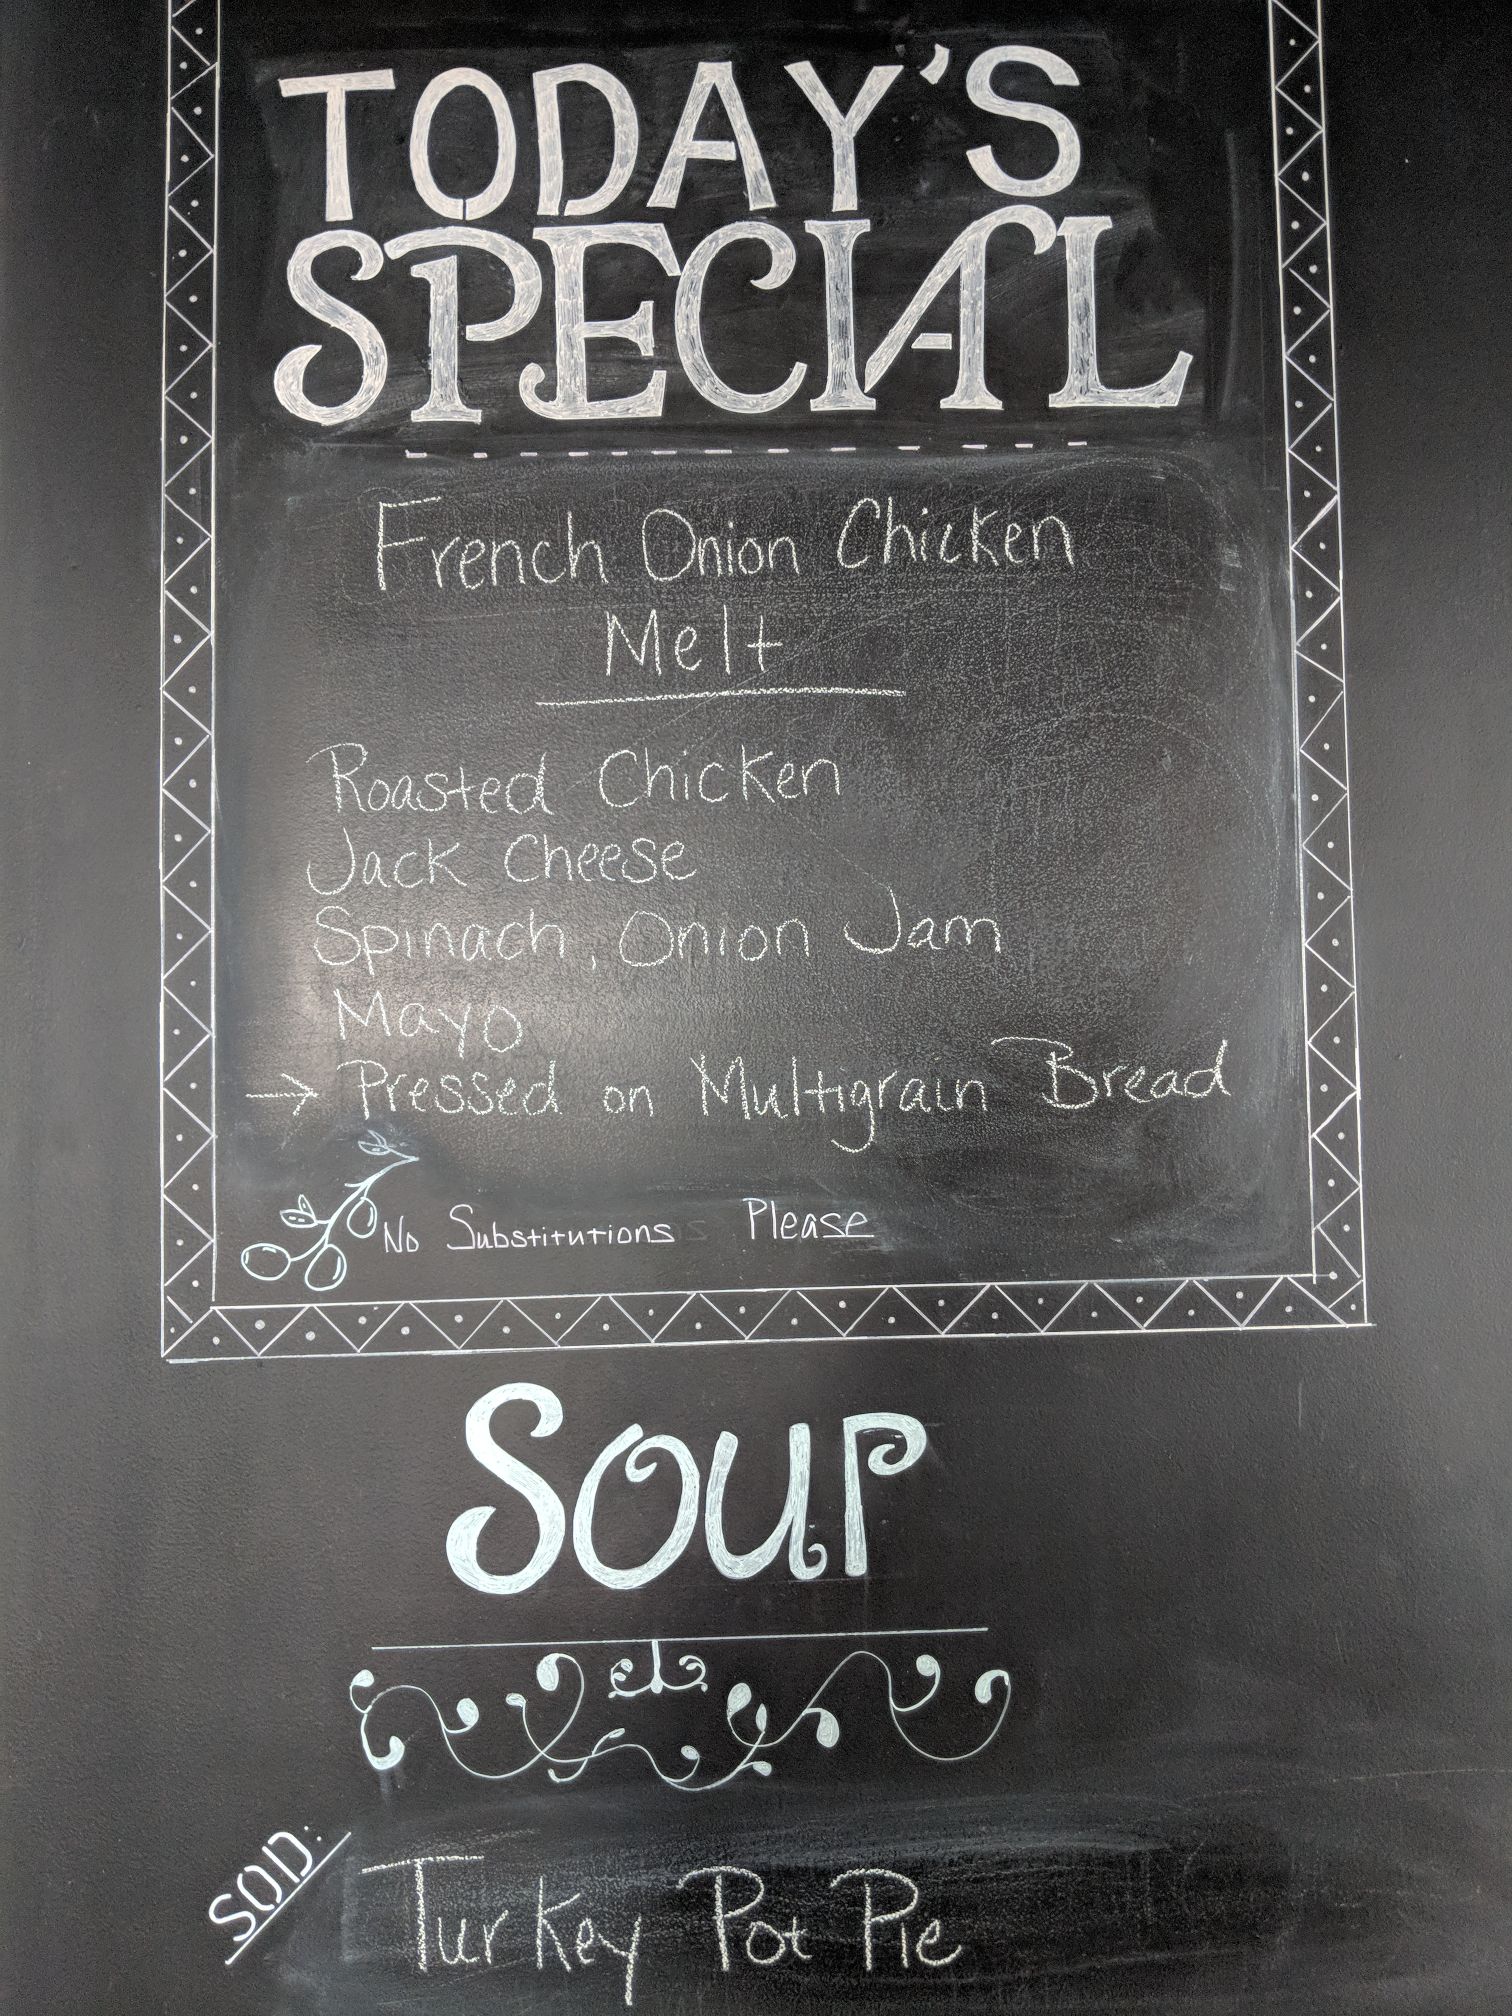 TODAY'S
SPECIAL
French Onion Chicken
Melt
Roasted Chicken
Jack Cheese
Spinach, Onion Jam
Mayo
→ Pressed on Multigrain Bread
No Substitutions Please
SOUP
SOTD:
Turkey Pot Pie